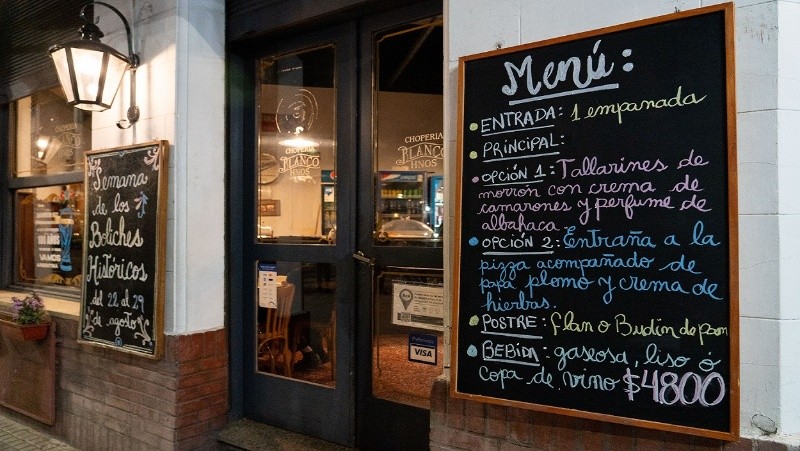 Semana
de los
Boliches
Históricos
del 22 al 29
de agosto
CHOPERIA
BLANCO
HNOS
CHOPERIA
BLANCO
HNOS
VAMOS
VISA
Menú:
ENTRADA: 1 empanada
PRINCIPAL:
OPCIÓN 1: Tallarines de
morrón con crema de
camarones y perfume de
albahaca
OPCIÓN 2: Entraña a la
pizza acompañado de
papa plomo y crema de
hierbas.
POSTRE: flan o Budin de pan
BEBIDA: gaseosa, liso ó
copa de vino $4800